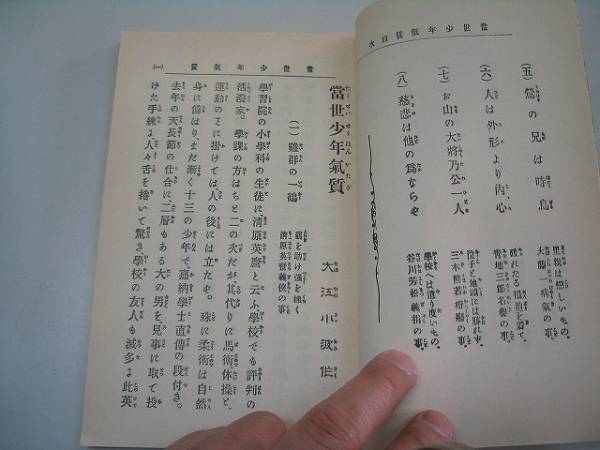 當世少年氣質目次
(五) 鶯の兄は時鳥
(六) 人は外形より内心
(七) お山の大將乃公一人
(八) 慈悲は他の爲ならず
里親は嬉しいもの。
大藤一 病氣の事
青地三郎名譽の事
投手と地頭には勝れず
三木熊若 癇癪の事
學校へは通り度いもの。
谷川芳松義捐の事
當世少年氣質
(一)
當世少年氣質
大江小波作
(一) 雞群の一鶴
弱を助け強を挫く
清原英麿義俠の事
學習院の小學科の生徒に、清原英麿と云ふ學校でも評判の
活潑家。學課の方はちと二の次だが其代りに馬術体操と、
運動のことに掛けては、人の後には立たぬ。殊に柔術は自然
身に備はり、まだ漸く十三の少年で、嘉納學士直傳の段付き。
去年の天長節の仕合に、二層もある大の男を、見事に取て投
けた手練よ、人々舌を捲いて驚き、學校の友人も滅多よ此英